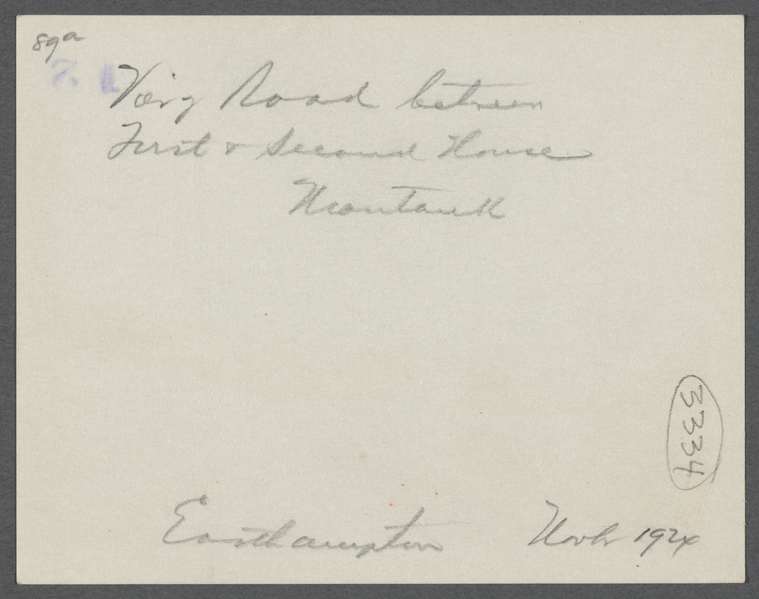 89a
Road between
First & Second House
Montauk
3334
Easthampton Novbr 1924